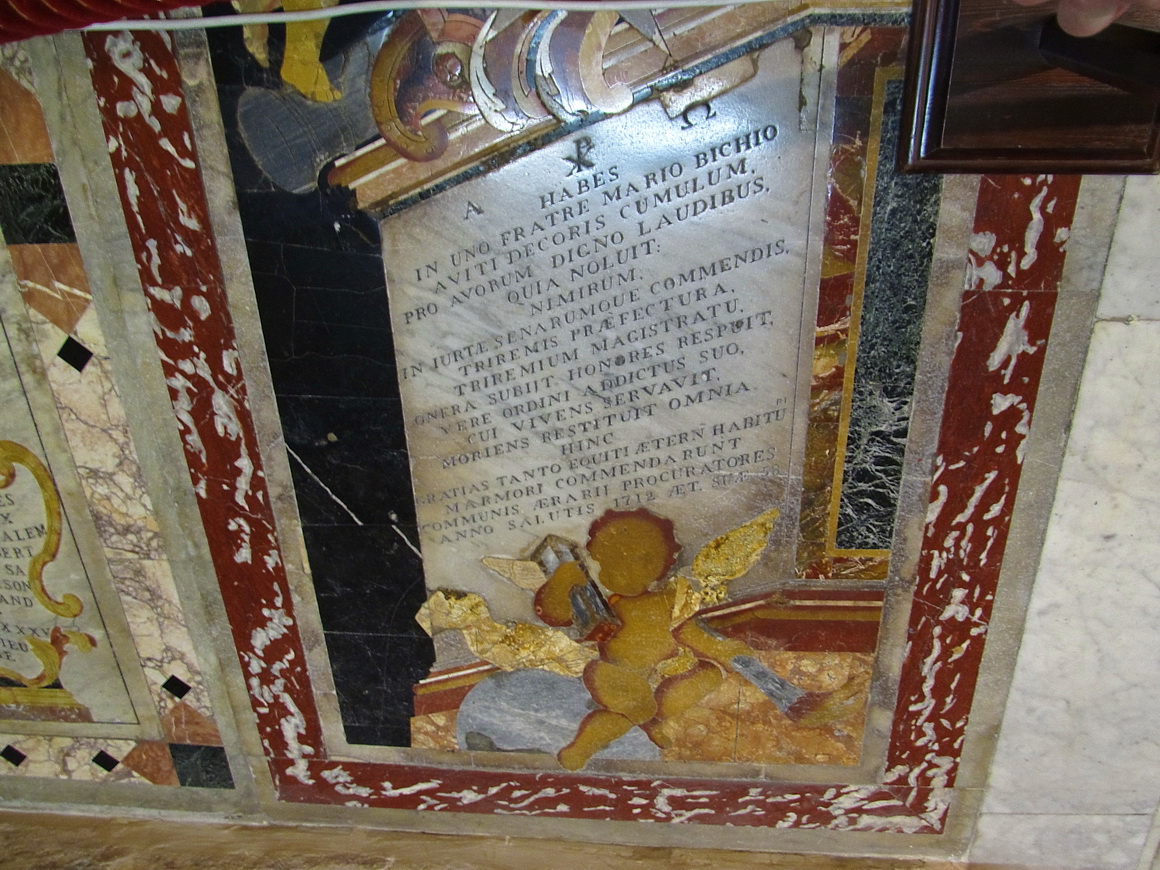 A ☧ Ω
HABES
IN UNO FRATRE MARIO BICHIO
AVITI DECORIS CUMULUM,
PRO AVORUM DIGNO LAUDIBUS,
QUIA NOLUIT:
NIMIRUM.
IN IURTÆ SENARUMQUE COMMENDIS,
TRIREMIS PRÆFECTURA,
TRIREMIUM MAGISTRATU,
ONERA SUBIJT, HONORES RESPUIT,
VERE ORDINI ADDICTUS SUO,
CUI VIVENS SERVAVIT,
MORIENS RESTITUIT OMNIA
HINC
GRATIAS TANTO EQUITI ÆTERN HABITU
MARMORI COMMENDARUNT
COMMUNIS ÆRARIJ PROCURATORES
ANNO SALUTIS 1712 ÆT. SUÆ
ES
X
ALEM
BERT
SA
SON
AND